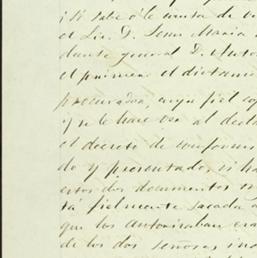 ¡Si sabe ó le consta de
el Lic. D. Jesus Maria
dante general D. Anto
el primero el dictamen
procurador, cuyo fiel
y se le hace ver al decl
el decreto de conform
do y presentado, si ha
estos dos documentos
tá fielmente sacada
que los autorizaban
de los dos señores